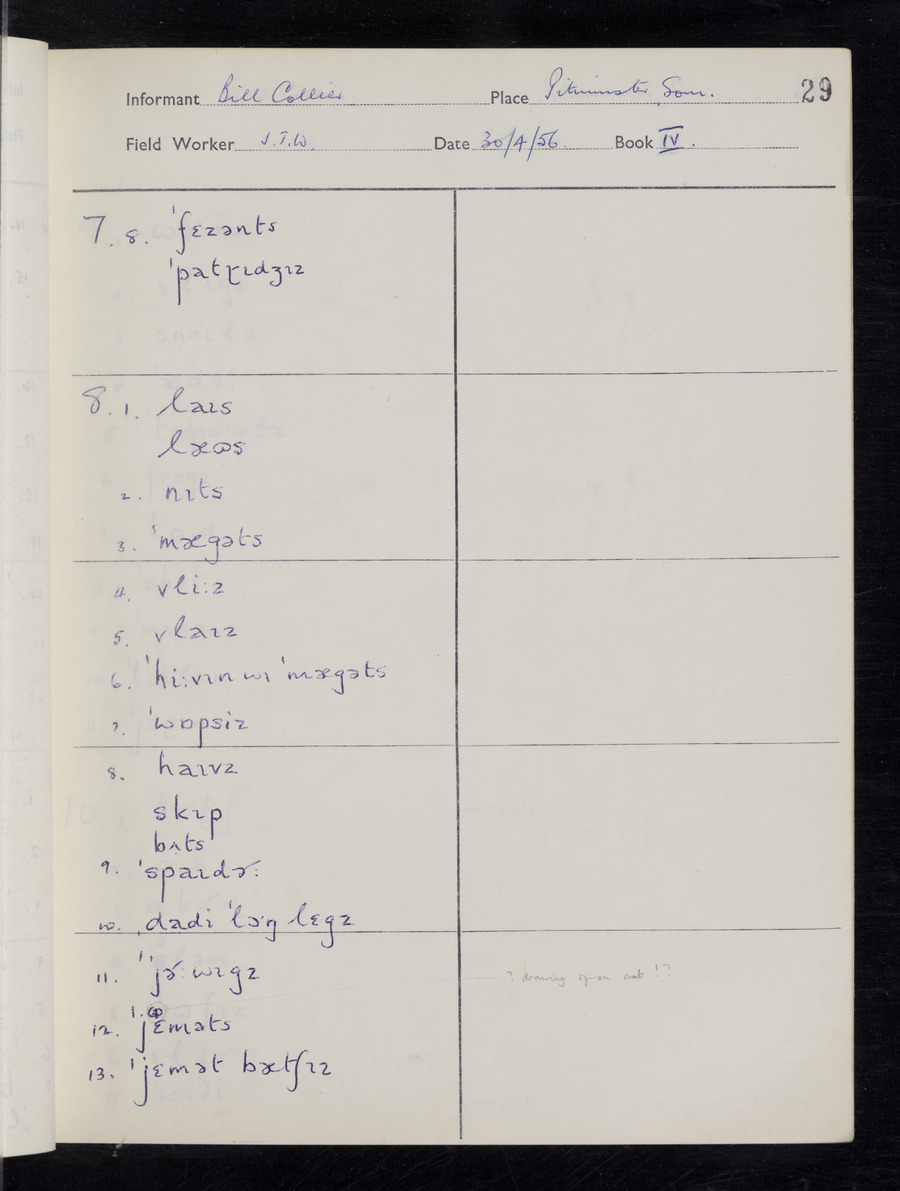 Informant Bill Collier Place Pitminster, Som. 29
Field Worker J.T.W. Date 30/4/56. Book IV.
7. 8. ˈfɛzənts
ˈpatɽɪdʒɪz
8. 1. laɪs
læʊs
2. nɪts
3. ˈmægəts
4. vliːz
5. vlaɪz
6. ˈhiːvɪn wɪ ˈmægəts
7. ˈwɒpsiz
8. haɪvz
skɪp
bʌts
9. ˈspaɪdɚː
10. ˌdadi ˈlɔŋ lɛgz
11. ˈjɚːwɪgz ? drawing of an ant !?
12. ˈjɛməts
13. ˈjɛmət bætʃɪz